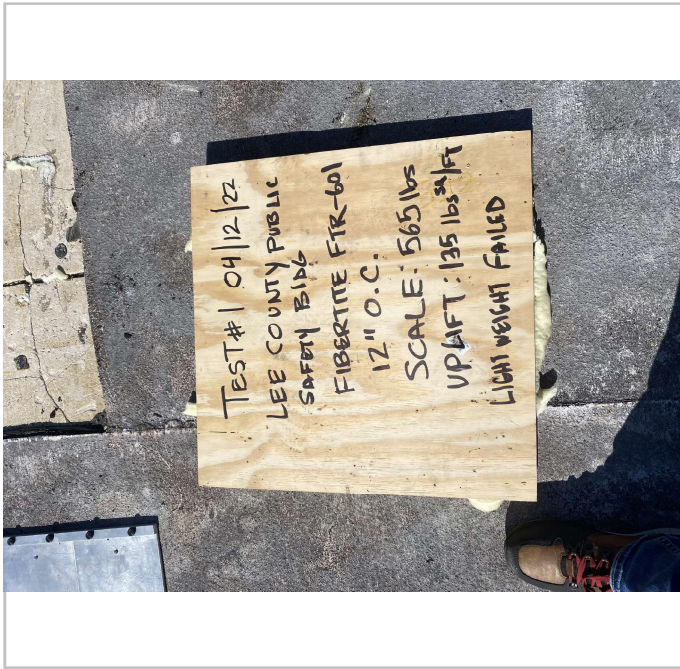 TEST#1 04/12/22
LEE COUNTY PUBLIC
SAFETY BLDG
FIBERTITE FTR-601
12" O.C.
SCALE: 565 lbs
UPLIFT: 135 lbs sq/FT
LIGHT WEIGHT FAILED